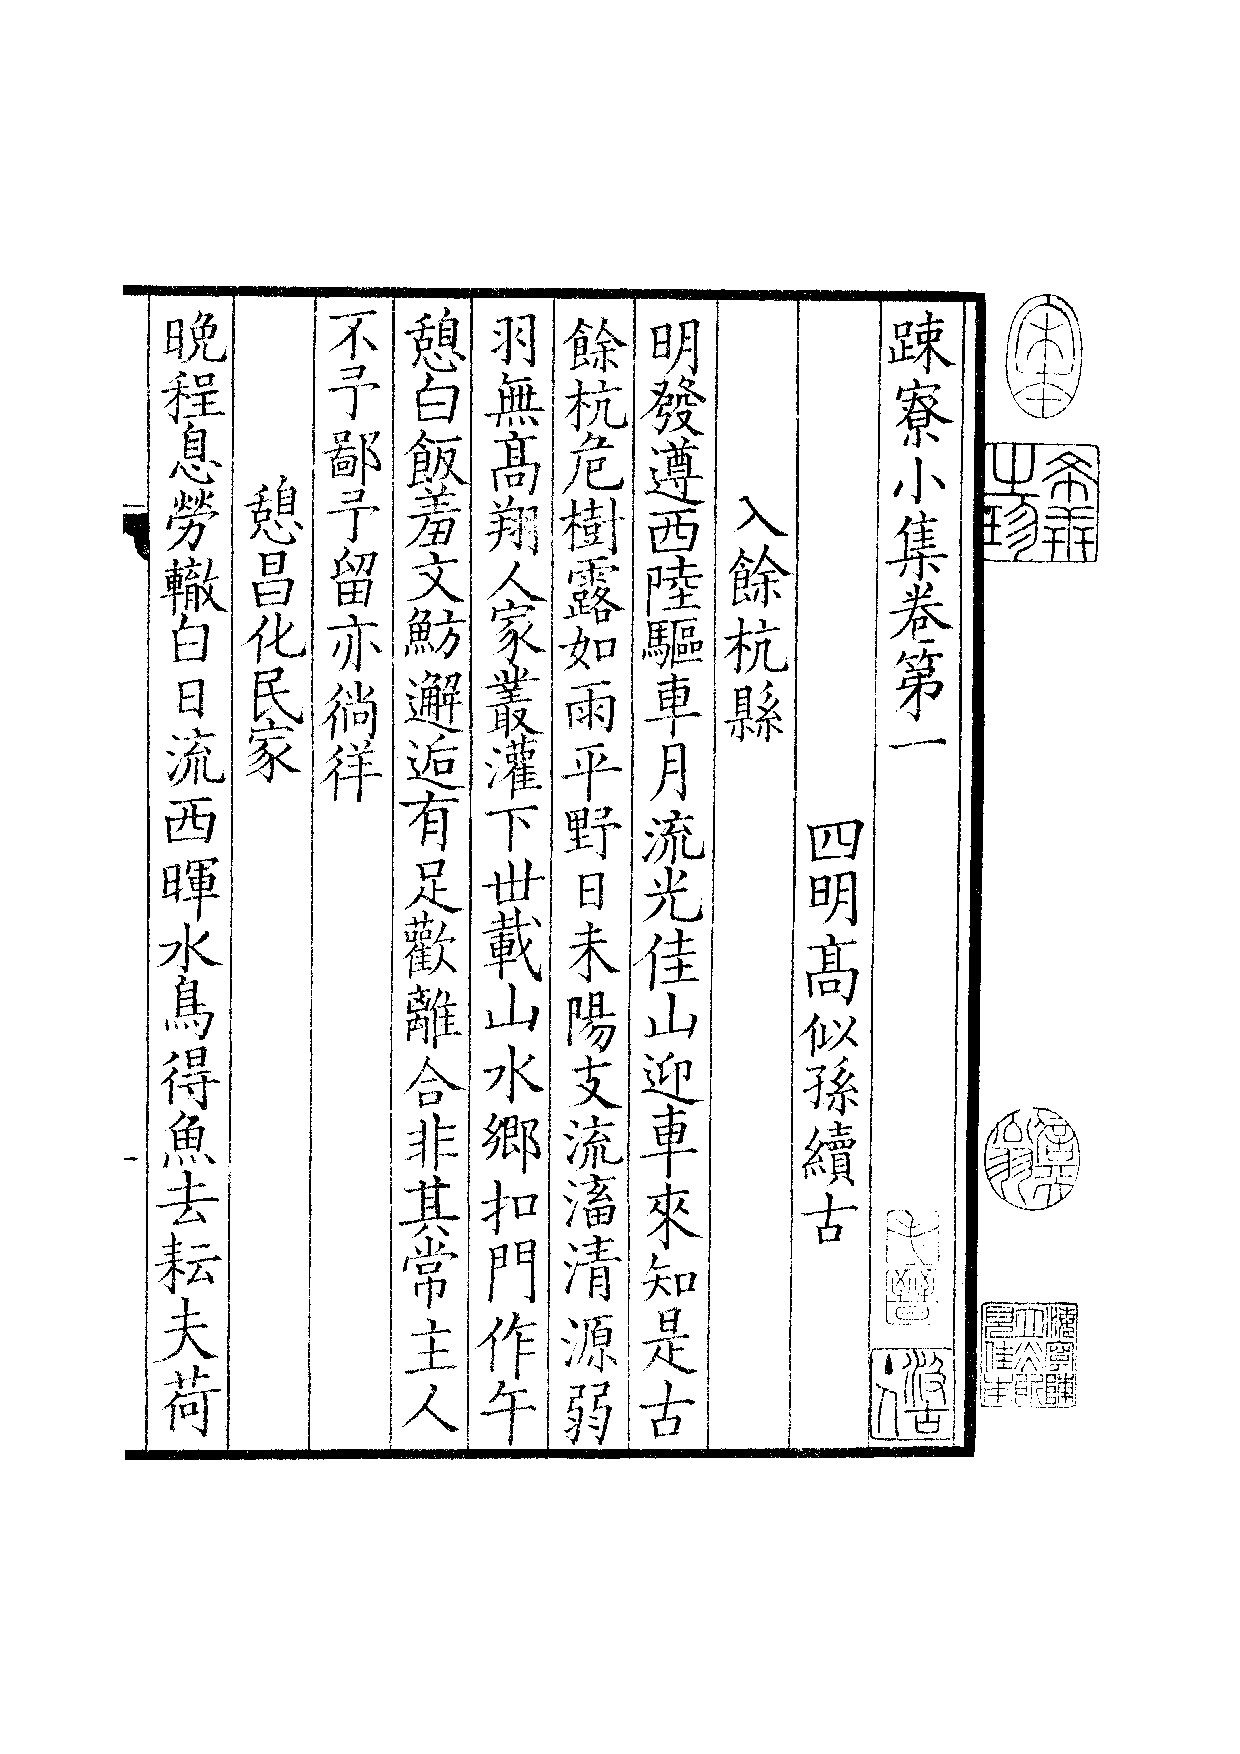 踈寮小集卷第一
四明髙似孫續古
入餘杭縣
明發遵西陸驅車月流光佳山迎車來知是古
餘杭危樹露如雨平野日未陽支流滀清源弱
羽無髙翔人家叢灌下丗載山水鄉扣門作午
憩白飯羞文魴邂逅有足歡離合非其常主人
不予鄙予留亦徜徉
憩昌化民家
晩程息勞轍白日流西暉水鳥得魚去耘夫荷